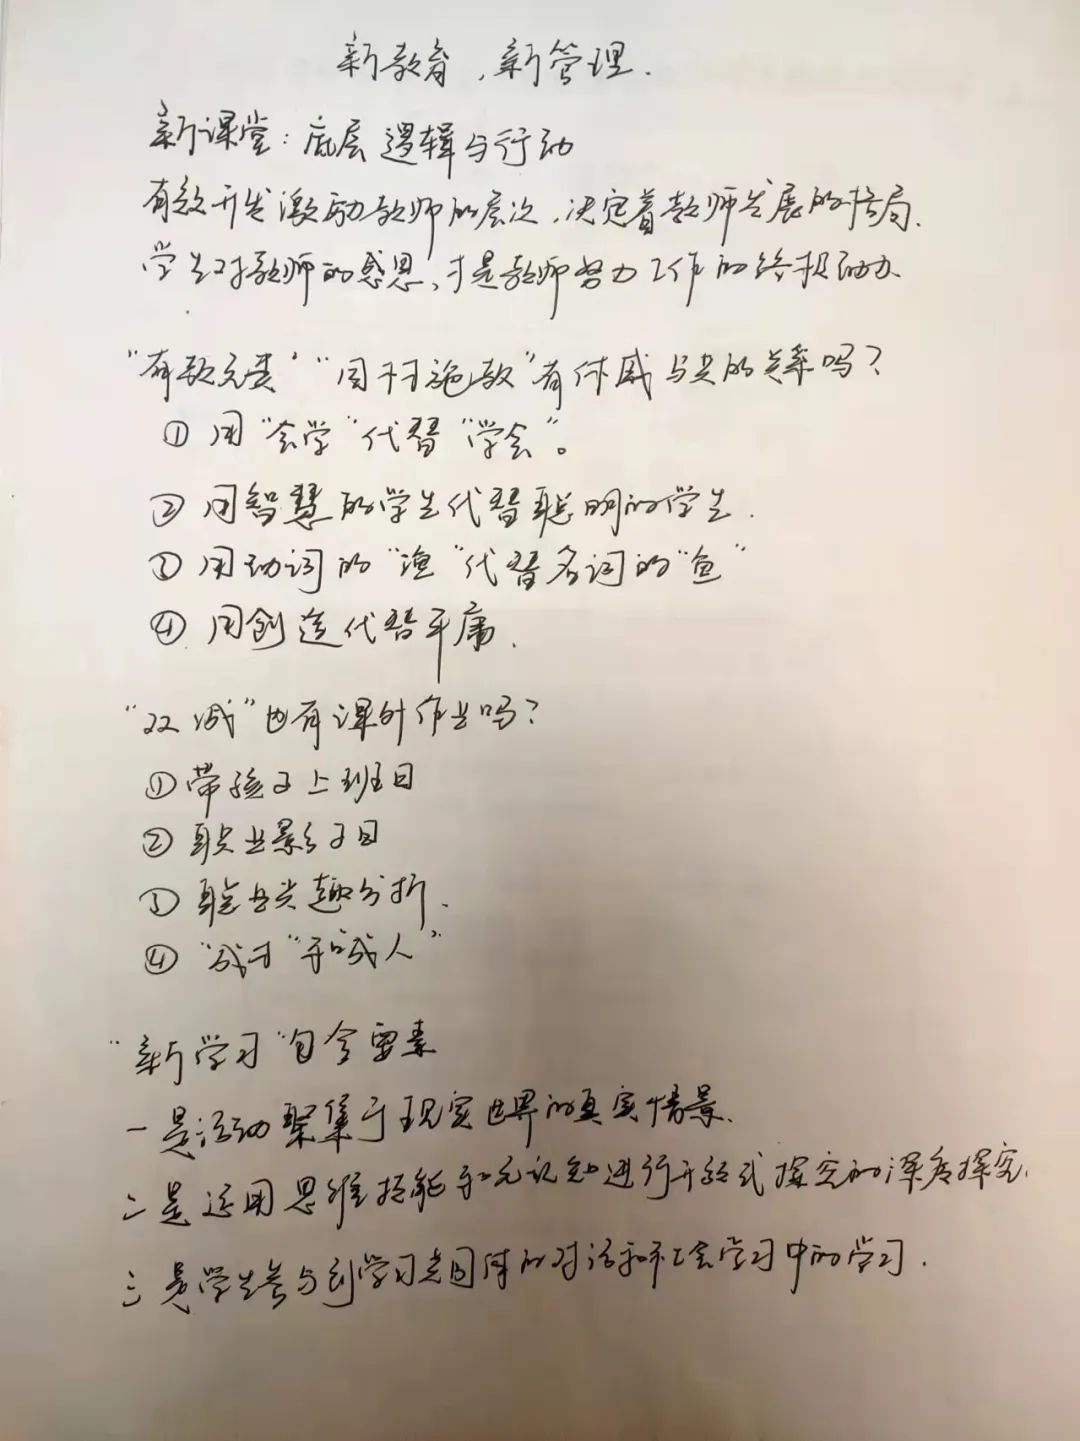 新教育，新管理.
新课堂：底层逻辑与行动
有效开发激励教师的层次，决定着教师发展的格局.
学生对教师的感恩，才是教师努力工作的终极动力.
“有教无类”“因材施教”有体感与关的关系吗？
① 用“会学”代替“学会”。
② 用智慧的学生代替聪明的学生.
③ 用动词的“渔”代替名词的“鱼”
④ 用创造代替平庸.
“双减”也有课外作业吗？
① 带孩子上班日
② 职业影子日
③ 职业兴趣分析.
④ “成才”和“成人”
“新学习”包含要素
一是活动聚集于现实世界的真实情景.
二是运用思维技能和元认知进行开放式探究的深度探究.
三是学生参与到学习共同体的对话和社会学习中的学习.